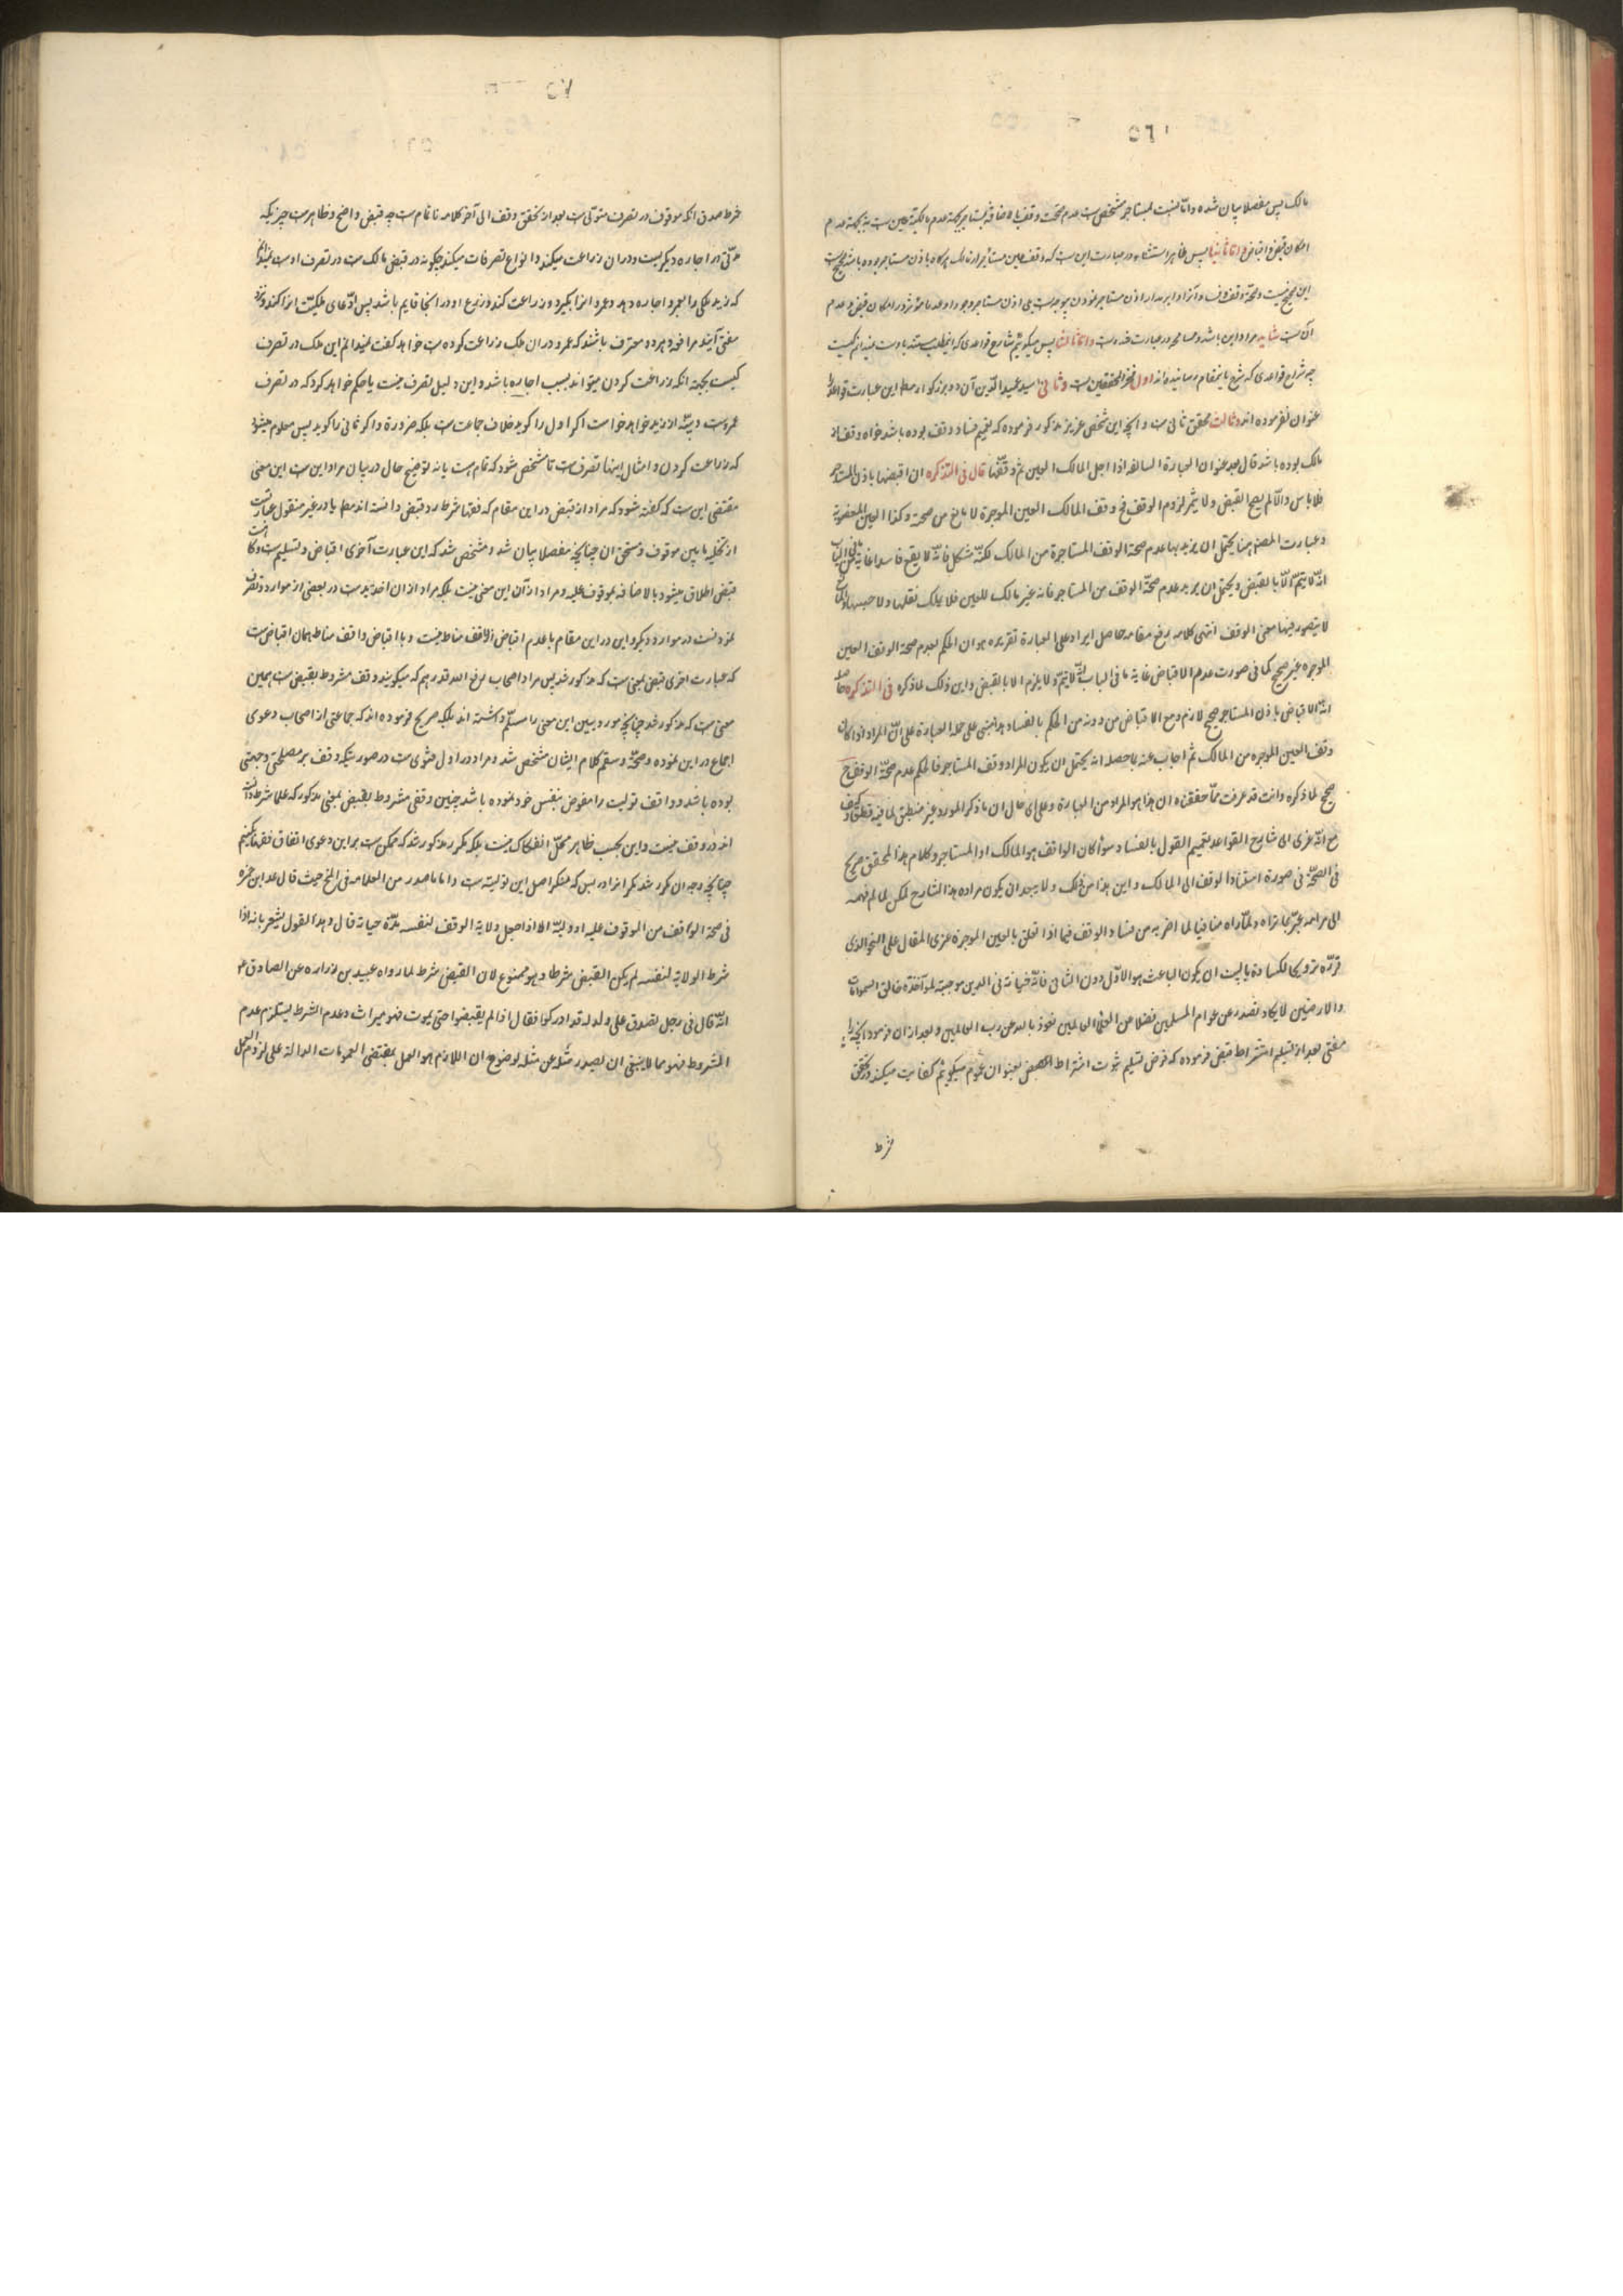 ۵۶
مالک پس مفصلا بیان شده و اما نسبت بمستاجر مشخص است عدم صحت وقف بالاضافه بمستاجر بجهة عدم مالکیة عین است نه بجهة عدم
امکان قبض و اقباض و اما ثانیا پس ظاهر استثناء در عبارت این است که وقف عین مستاجره از مالک هرگاه باذن مستاجر بوده باشد صحیح است
این صحیح نیست و صحة وقف
آن است شاید مراد این باشد و مسامحه در عبارت شده است و اما ثالثا پس میگوئیم شارع قواعدی که
چه شراح قواعدی که شرح باینمقام رسانیده‌اند اول فخر المحققین است و ثانی سید عمید الدین آن دو بزرگوار مطلقا این عبارت قواعد را
عنوان نفرموده‌اند و ثالث محقق ثانی است و آنچه این شخص عزیز مذکور فرموده که تعمیم فساد وقف بوده باشد خواه وقف از
مالک بوده باشد قال بعد عنوان العبارة السالفه اذا اجل المالک العین ثم وقفها قال فی التذکره ان اقبضها باذن المستاجر
فلا باس و الا لم یصح القبض و لا یثمر لزوم الوقف فح وقف المالک العین الموجرة لا مانع من صحة و کذا العین المغصوبة
و عبارت المصنف هنا یحتمل ان یرید بها عدم صحة الوقف المستاجرة من المالک لکنه مشکل فانه لا یقع فاسدا غایة ما فی الباب
انه لا یتم الا بالقبض و یحتمل ان یرید عدم صحة الوقف من المستاجر فانه غیر مالک للعین فلا یملک نقلها و لا حبسها
لا یتصور فیها معنی الوقف انتهی کلامه رفع مقامه حاصل ایراد علی العبارة تقریره هو ان الحکم بعدم صحة الوقف العین
الموجره غیر صحیح کما فی صورت عدم الاقباض غایة ما فی الباب انه لا یتم و لا یلزم الا بالقبض و این ذلک لما ذکره فی التذکره
انه الاقباض باذن المستاجر صحیح لازم و مع الاقباض من دونه من الحکم بالفساد هذا مبنی علی حمل العبارة علی ان المراد اذا کان
وقف العین الموجره من المالک ثم اجاب عنه بما حصله انه یحتمل ان یکون المراد وقف المستاجر فالحکم عدم صحة الوقف ح
صحیح لما ذکره و انت قد عرفت مما حققناه ان هذا هو المراد من العبارة و علی ای حال ان ما ذکر المورد غیر منطبق لما فیه قطعا و کیف
مع انه عزی الی شارح القواعد لتعمیم القول بالفساد سواء کان الواقف هو المالک او المستاجر و کلام هذا المحقق صریح
فی الصحة فی صورة استناد الوقف الی المالک و این هذا من ذلک و لا یبعد ان یکون مراده هذا الشارح لکن لما لم یفهم
الی مرامه عبر بما تراه و لما راه منافیا لما اخر به من فساد الوقف فیما اذا تعلق بالعین الموجرة عزی المقال علی النحو الذی
قرره ترویجا لکساده یا لیت ان یکون الباعث هو الاول دون الثانی فانه خیانة فی الدین موجبة لمؤاخذة خالق السموات
و الارضین لا یکاد تصدر عن عوام المسلمین فضلا من العلماء العالمین نعوذ بالله من رب العالمین و بعد از آن فرموده آنچه را
مفتی بعد از تسلیم اشتراط قبض فرموده که فرض تسلیم ثبوت اشتراط القبض بعنوان عموم میگوئیم کفایت میکند در تحقق
شرط
۷۵
شرط صدق آنکه موقوف در تصرف متولی است بعد از تحقق وقف الی آخر کلامه ناتمام است چه قبض واضح و ظاهر است چیزیکه
مدتی در اجاره دیگریست و در آن زراعت میکند و انواع تصرفات میکند چگونه در قبض مالک است در تصرف اوست نمیدانم
که زید ملکی را بعمرو اجاره دهد و عمرو آنرا بگیرد و زراعت کند و زرع او در آنجا قایم باشد پس ادعای ملکیت آنرا کند و نزد
مفتی آیند مرافعه و هر دو معترف باشند که عمرو در آن ملک زراعت کرده است خواهد گفت نمیدانم این ملک در تصرف
کیست بجهة آنکه زراعت کردن میتواند بسبب اجاره باشد و این دلیل تصرف نیست یا حکم خواهد کرد که در تصرف
عمرو است و بینه از زید خواهد خواست اگر اول را گوید خلاف جماعت است بلکه ضرورة و اگر ثانی را گوید پس معلوم میشود
که زراعت کردن و امثال اینها تصرف است تا مشخص شود که تمام است یا نه توضیح حال در بیان مراد این است این معنی
مقتضی این است که گفته شود که مراد از قبض در این مقام که فقها شرط در وقف دانسته‌اند مطلقا یا در غیر منقول عبارتست
از تخلیه مابین موقوف و مستحق آن چنانچه مفصلا بیان شد و مشخص شد که این عبارت آخری اقباض و تسلیم است و گاه است
قبض اطلاق میشود بالاضافه بموقوف علیه و مراد از آن این معنی نیست بلکه مراد از آن اخذ بید است در بعضی از موارد و تصرف
نمودنست در موارد دیگر و این در این مقام با عدم اقباض واقف مناط نیست و با اقباض واقف مناط همان اقباض است
که عبارت اخری قبض بمعنی است که مذکور شد پس مراد اصحاب رفع الله قدرهم که میگویند وقف مشروط بقبض است همین
معنی است که مذکور شد چنانچه مورد بین این معنی را مسلم داشته‌اند بلکه صریح فرموده‌اند که جماعتی از اصحاب دعوی
اجماع در این نموده و صحة و سقم کلام ایشان مشخص شد و مراد در اول مثنوی است در صورتیکه وقف بر مصلحتی و جهتی
بوده باشد و واقف تولیت را مفوض بنفس خود نموده باشد چنین وقفی مشروط بقبض بمعنی مذکور که علما شرط دانسته
اند در وقف نیست و این بحسب ظاهر محل انفکاک نیست بلکه مکرر مذکور شد که ممکن است بر این دعوی اتفاق فقها کنیم
چنانچه وجه آن مکرر شد مگر افراد بس که منکر اصل این تولیة است و اما ما صدر من العلامه فی المخ حیث قال عد ابن حمزه
فی صحة الواقف من الموقوف علیه او ولیه الا اذا جعل ولایة الوقف لنفسه مدة حیاته قال و هذا القول یشعر بانه اذا
شرط الولایة لنفسه لم یکن القبض شرطا و هو ممنوع لان القبض شرط لما رواه عبید بن زراره عن الصادق ع
انه قال فی رجل تصدق علی ولد له قد ادرکوا فقال اذا لم یقبضوا حتی یموت فهو میراث و عدم الشرط یستلزم عدم
المشروط فهو مما لا ینبغی ان یصدر مثله عن مثله لوضوح ان اللازم هو العمل بمقتضی العمومات الدالة علی لزوم العمل